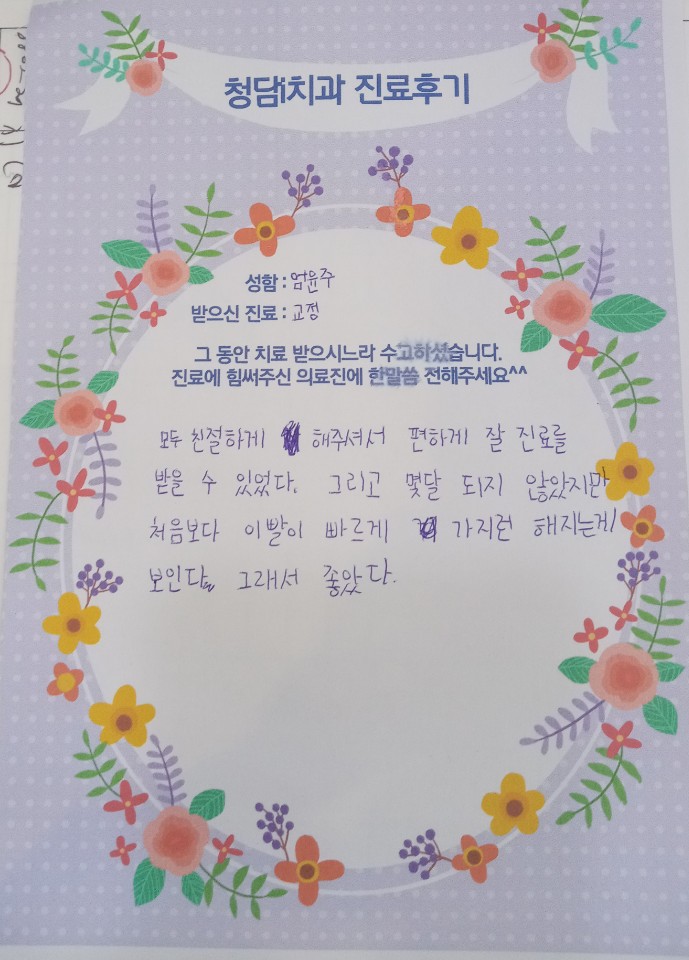 청담치과 진료후기
성함 : 엄윤주
받으신 진료 : 교정
그 동안 치료 받으시느라 수고하셨습니다.
진료에 힘써주신 의료진에 한말씀 전해주세요^^
모두 친절하게 해주셔서 편하게 잘 진료를
받을 수 있었다. 그리고 몇달 되지 않았지만
처음보다 이빨이 빠르게 가지런 해지는게
보인다. 그래서 좋았다.